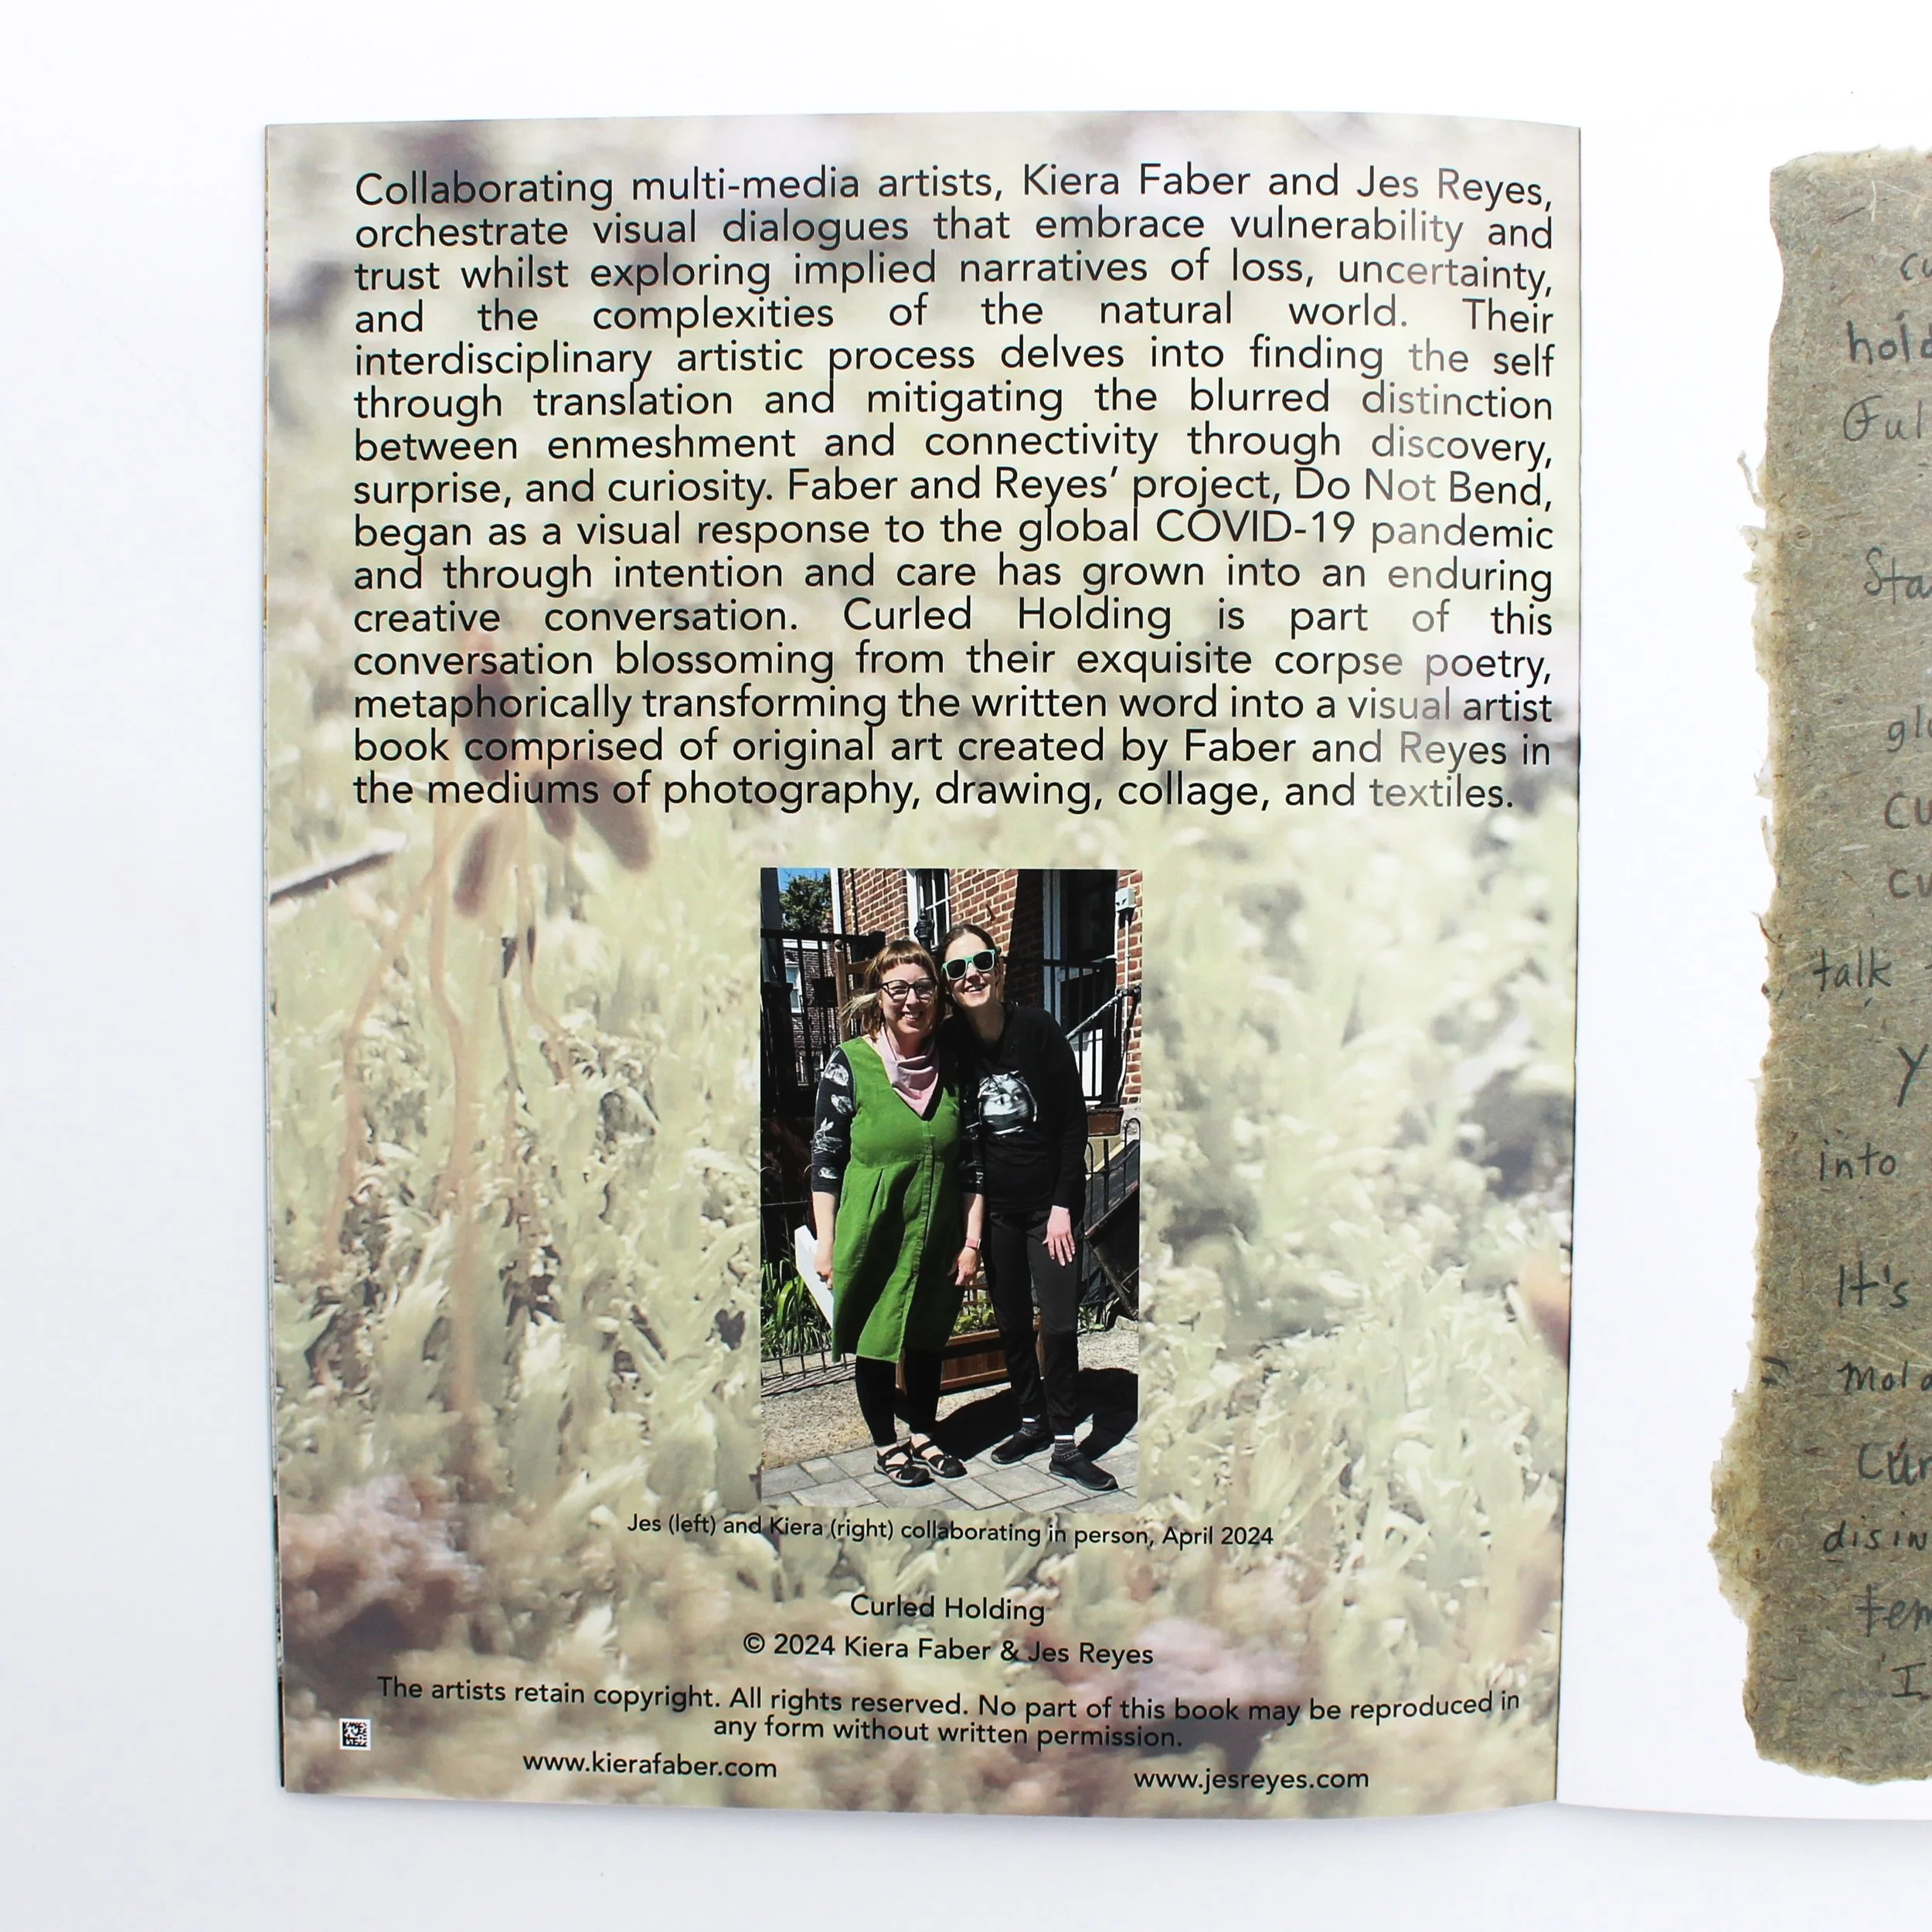 Collaborating multi-media artists, Kiera Faber and Jes Reyes,
orchestrate visual dialogues that embrace vulnerability and
trust whilst exploring implied narratives of loss, uncertainty,
and the complexities of the natural world. Their
interdisciplinary artistic process delves into finding the self
through translation and mitigating the blurred distinction
between enmeshment and connectivity through discovery,
surprise, and curiosity. Faber and Reyes' project, Do Not Bend,
began as a visual response to the global COVID-19 pandemic
and through intention and care has grown into an enduring
creative conversation. Curled Holding is part of this
conversation blossoming from their exquisite corpse poetry,
metaphorically transforming the written word into a visual artist
book comprised of original art created by Faber and Reyes in
the mediums of photography, drawing, collage, and textiles.
Jes (left) and Kiera (right) collaborating in person, April 2024
Curled Holding
© 2024 Kiera Faber & Jes Reyes
The artists retain copyright. All rights reserved. No part of this book may be reproduced in
any form without written permission.
www.kierafaber.com
www.jesreyes.com
talk
into
It's